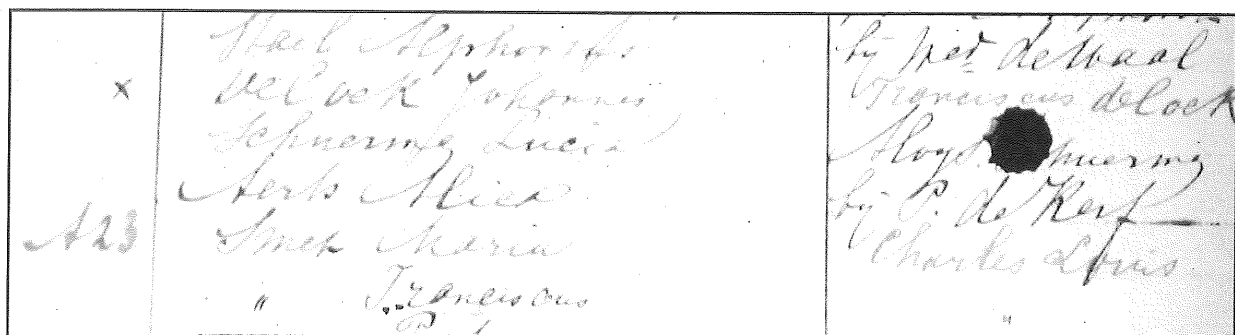 Stael Alphonsus by Pet. de Waal
x De Cock Johannes Franciscus de Cock
Schuerm Lucia Aloys
Aerts Alice by P. de Kerf
A 23 Smet Maria Charles Louis
" Franciscus "